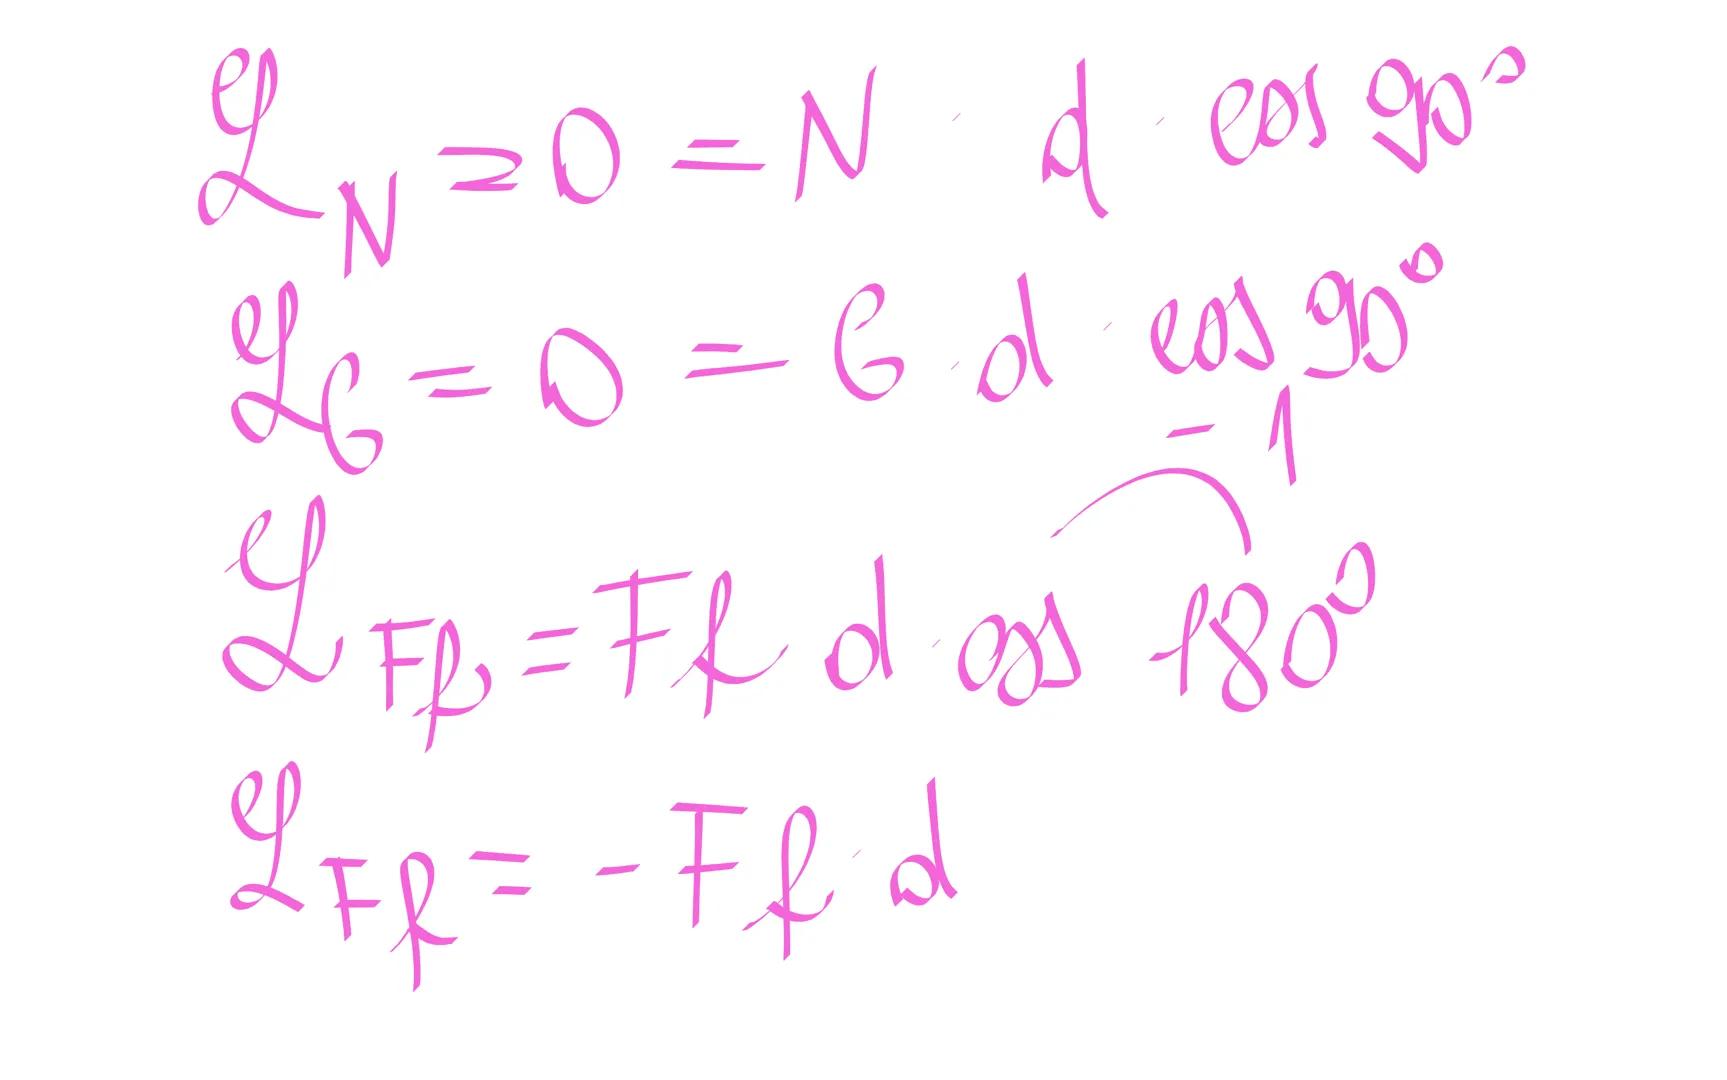 L_N = 0 = N · d · cos 90°
L_G = 0 = G · d · cos 90°
- 1
L_Ff = Ff d · cos 180°
L_Ff = - Ff · d